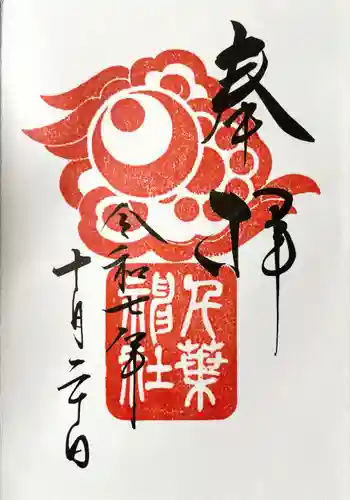 奉拝
千葉
神社
令和七年
十月二十日